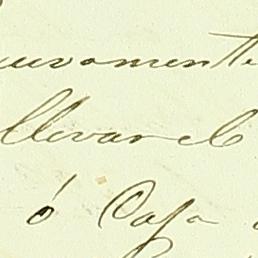 nuevamente
llevar el
ó Casa